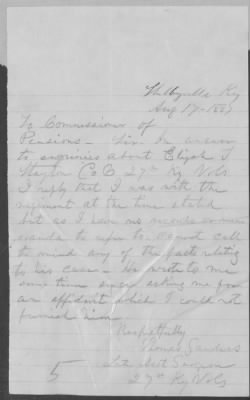 Shelbyville Ky
Aug 17 - 1887
To Commissioner of
Pensions - Sir. In answer
to enquiries about Elijah J
Co C 27th Ky Vols.
I reply that I was with the
regiment at the time stated
but as I have no records or mem
oranda to refer to. Cannot call
to mind any of the facts relating
to his case - He wrote to me
some time since asking me for
an affidavit which I could not
furnish him
Respectfully
Thomas
Late Asst Surgeon
5 27th Ky Vols